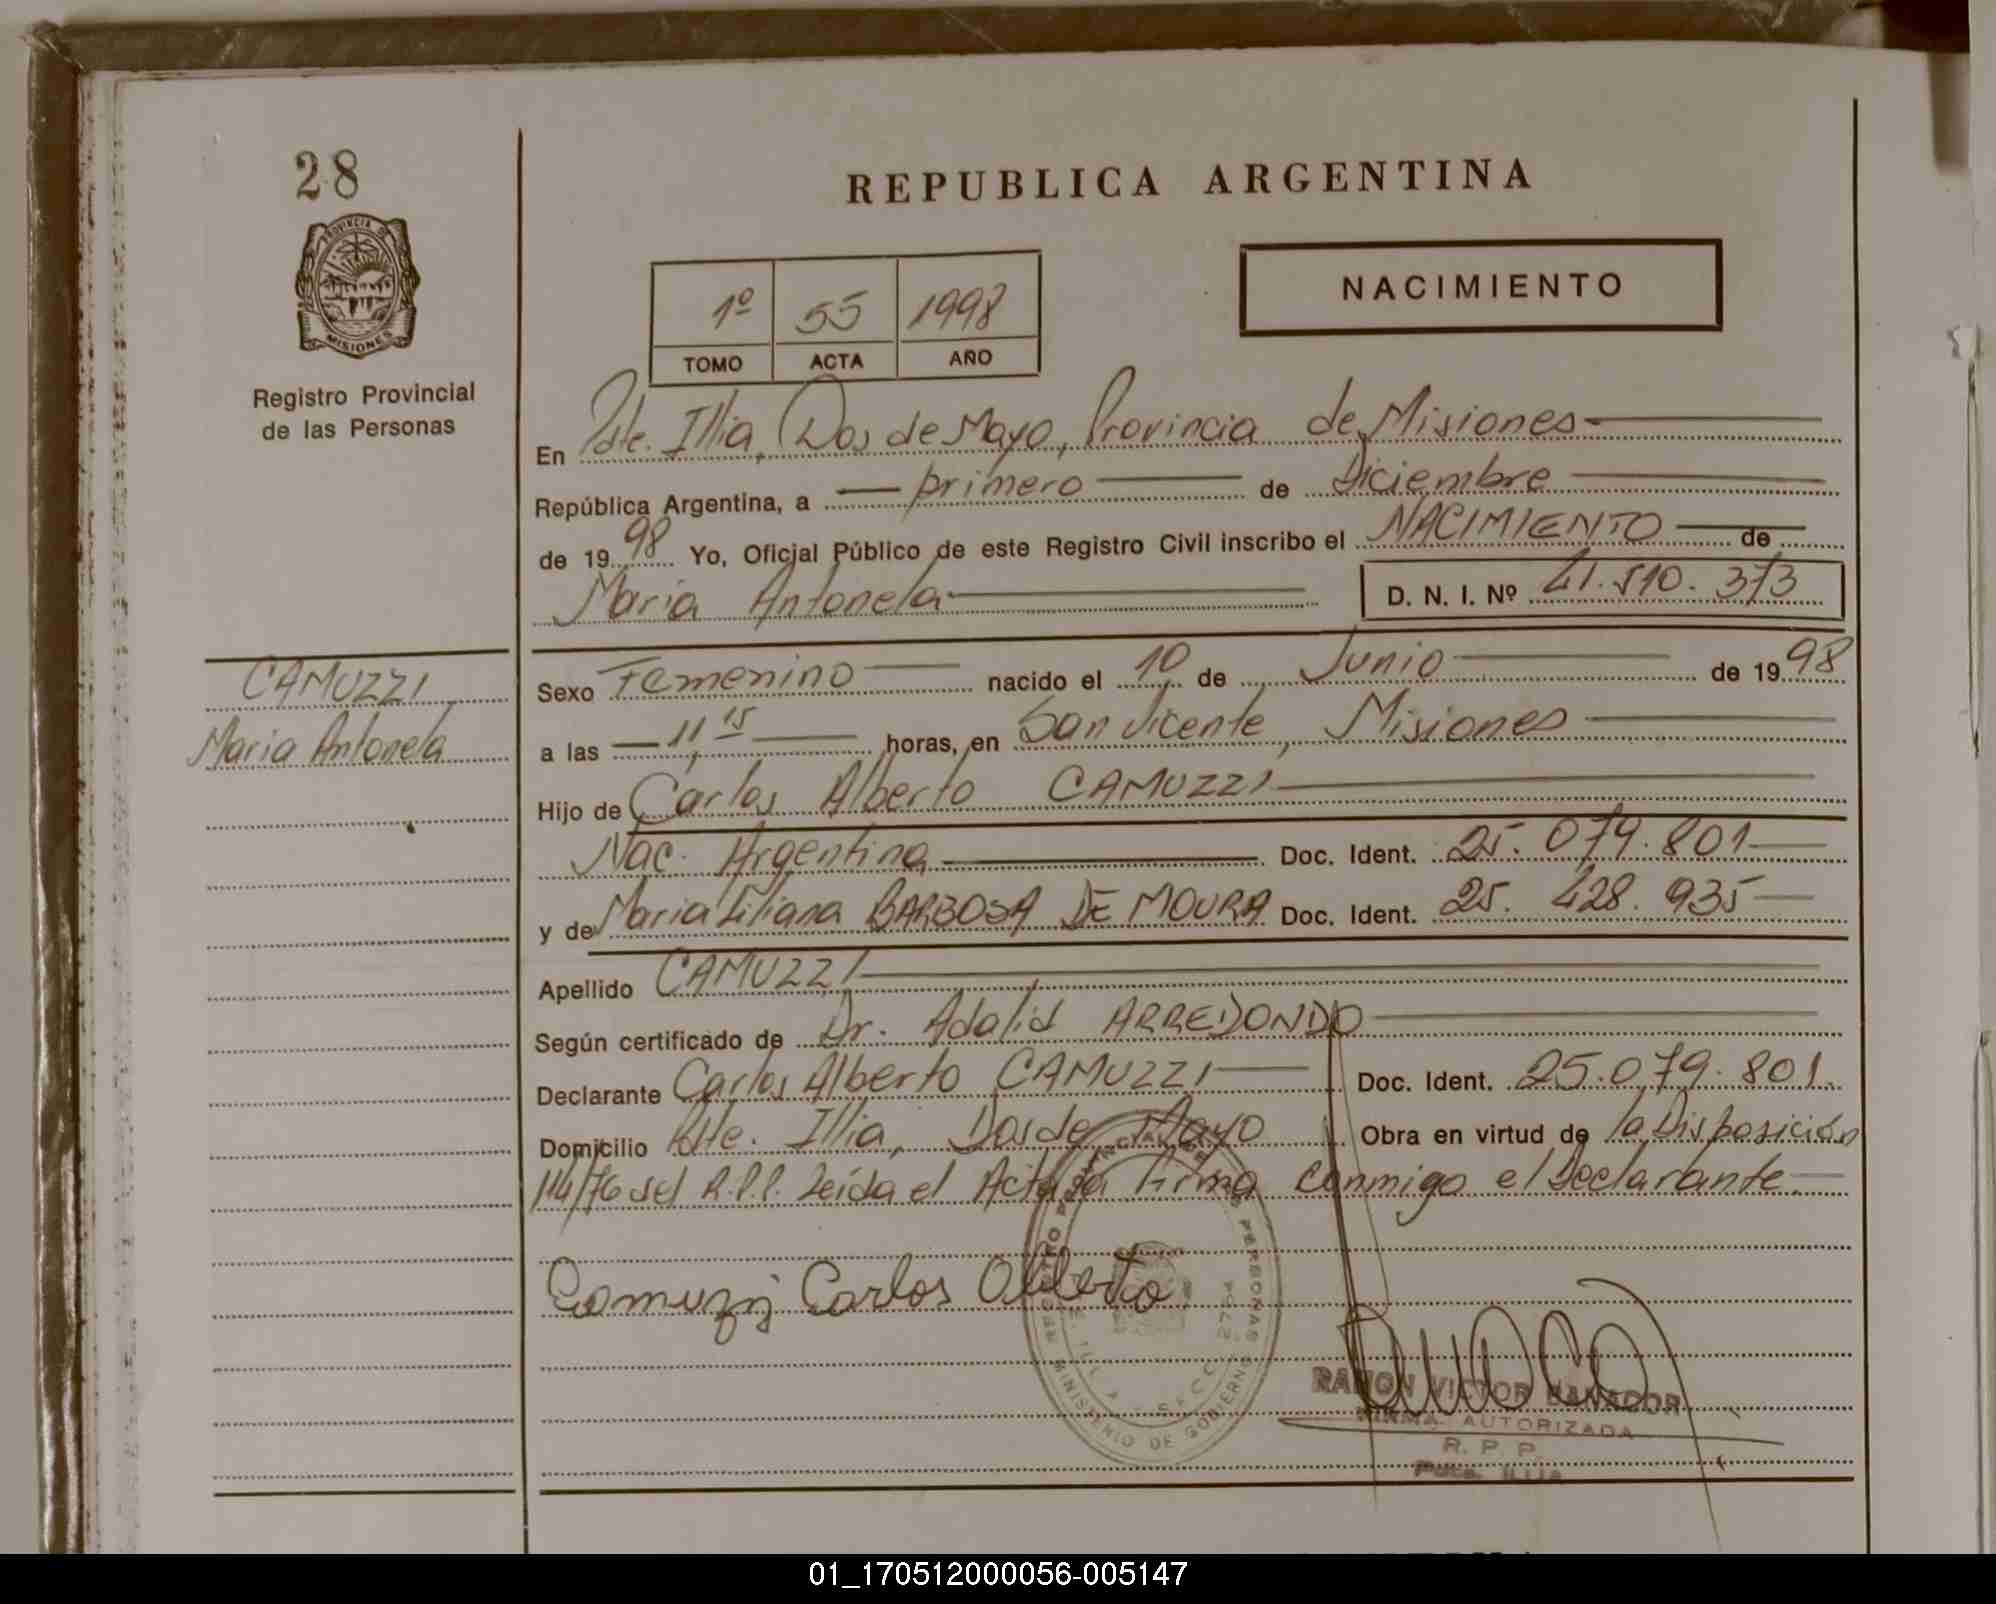 28
PROVINCIA DE
MISIONES
Registro Provincial
de las Personas
REPUBLICA ARGENTINA
1º 55 1998
TOMO ACTA AÑO
NACIMIENTO
En Pdte. Illia, Dos de Mayo, Provincia de Misiones
República Argentina, a primero de Diciembre
de 1998 Yo, Oficial Público de este Registro Civil inscribo el NACIMIENTO de
Maria Antonela D. N. I. Nº 41.510.373
CAMUZZI
Maria Antonela
Sexo Femenino nacido el 10 de Junio de 1998
a las 11,15 horas, en San Vicente, Misiones
Hijo de Carlos Alberto CAMUZZI
Nac. Argentina Doc. Ident. 25.079.801
y de Maria Liliana BARBOSA DE MOURA Doc. Ident. 25.428.935
Apellido CAMUZZI
Según certificado de Dr. Adalid ARREDONDO
Declarante Carlos Alberto CAMUZZI Doc. Ident. 25.079.801.
Domicilio Pdte. Illia, Dos de Mayo Obra en virtud de la Disposición
114/76 del R.P.P. Leída el Acta la firma conmigo el Declarante.
Camuzzi Carlos Alberto
MINISTERIO DE GOBIERNO
RAMON VICTOR
FIRMA AUTORIZADA
R. P. P.
01_170512000056-005147